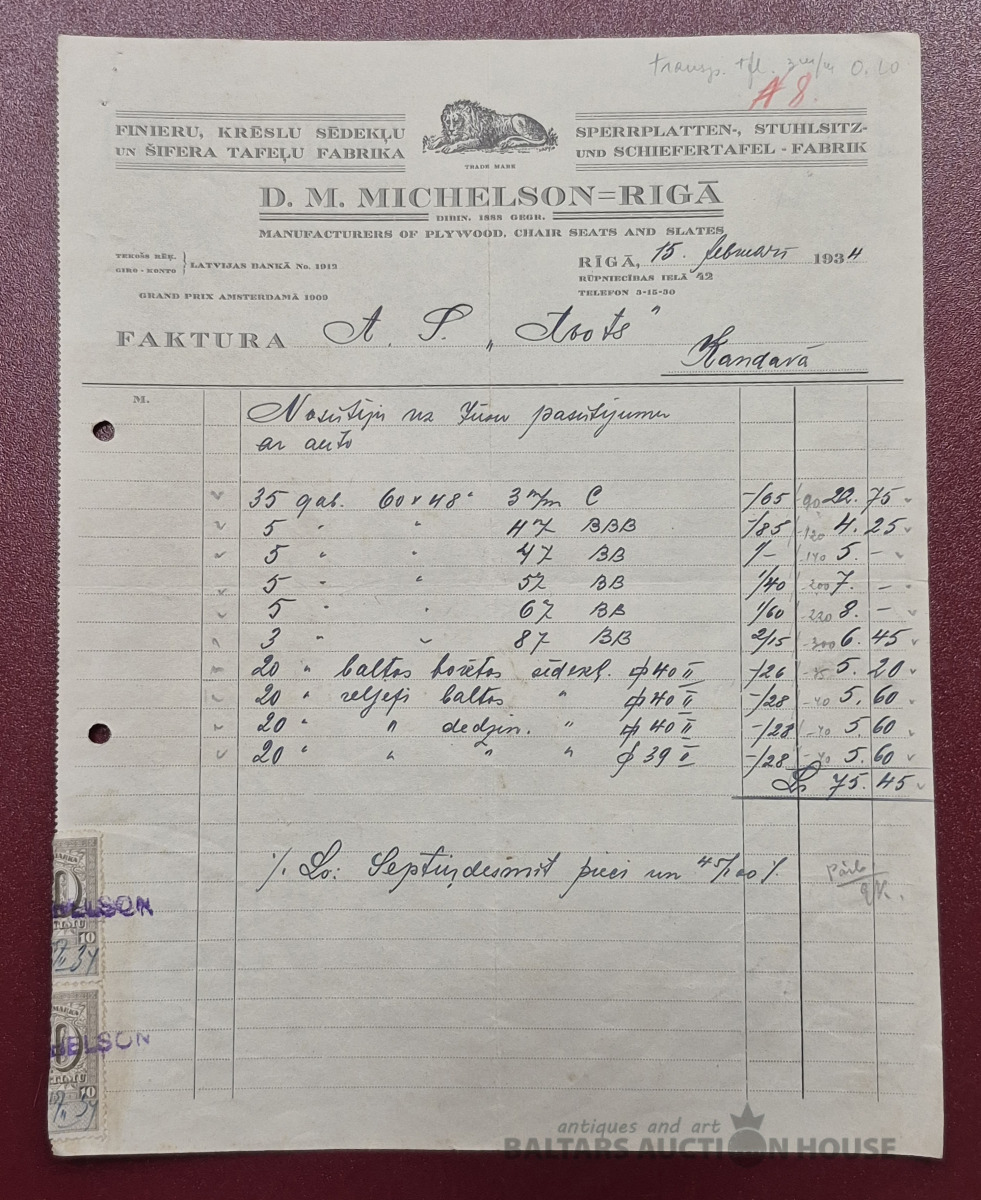 transp. 3 m/m 0.60
A 8.
FINIERU, KRĒSLU SĒDEKĻU
UN ŠIFERA TAFEĻU FABRIKA
SPERRPLATTEN-, STUHLSITZ-
UND SCHIEFERTAFEL - FABRIK
TRADE MARK
D. M. MICHELSON=RIGĀ
DIBIN. 1888 GEGR.
MANUFACTURERS OF PLYWOOD, CHAIR SEATS AND SLATES
TEKOŠS RĒĶ.
GIRO - KONTO } LATVIJAS BANKĀ No. 1912
RĪGĀ, 15. februarī 1934
RŪPNIECĪBAS IELĀ 42
TELEFON 3-15-30
GRAND PRIX AMSTERDAMĀ 1909
FAKTURA A. S. „Avots"
Kandavā
M.
Nosūtīju uz Jūsu pasūtījumu
ar auto
35 gab. 60 x 48" 3 m/m C -/65 90 22. 75
5 " " 4 " BBB -/85 -120 4. 25
5 " " 4 " BB 1/- -140 5. -
5 " " 5 " BB 1/40 -200 7. -
5 " " 6 " BB 1/60 -220 8. -
3 " " 8 " BB 2/15 -300 6. 45
20 " baltos sēdekļ. ⌀ 40 II -/26 -35 5. 20
20 " reljefi baltos " ⌀ 40 II -/28 -40 5. 60
20 " " dedzin. " ⌀ 40 II -/28 -40 5. 60
20 " " " " ⌀ 39 II -/28 -40 5. 60
Ls 75. 45
·/. Ls: Septiņdesmit pieci un 45/100 ·/.
Pārb.
MARKA
HELSON
10
34
MARKA
HELSON
10
34
antiques and art
BALTARS AUCTION HOUSE